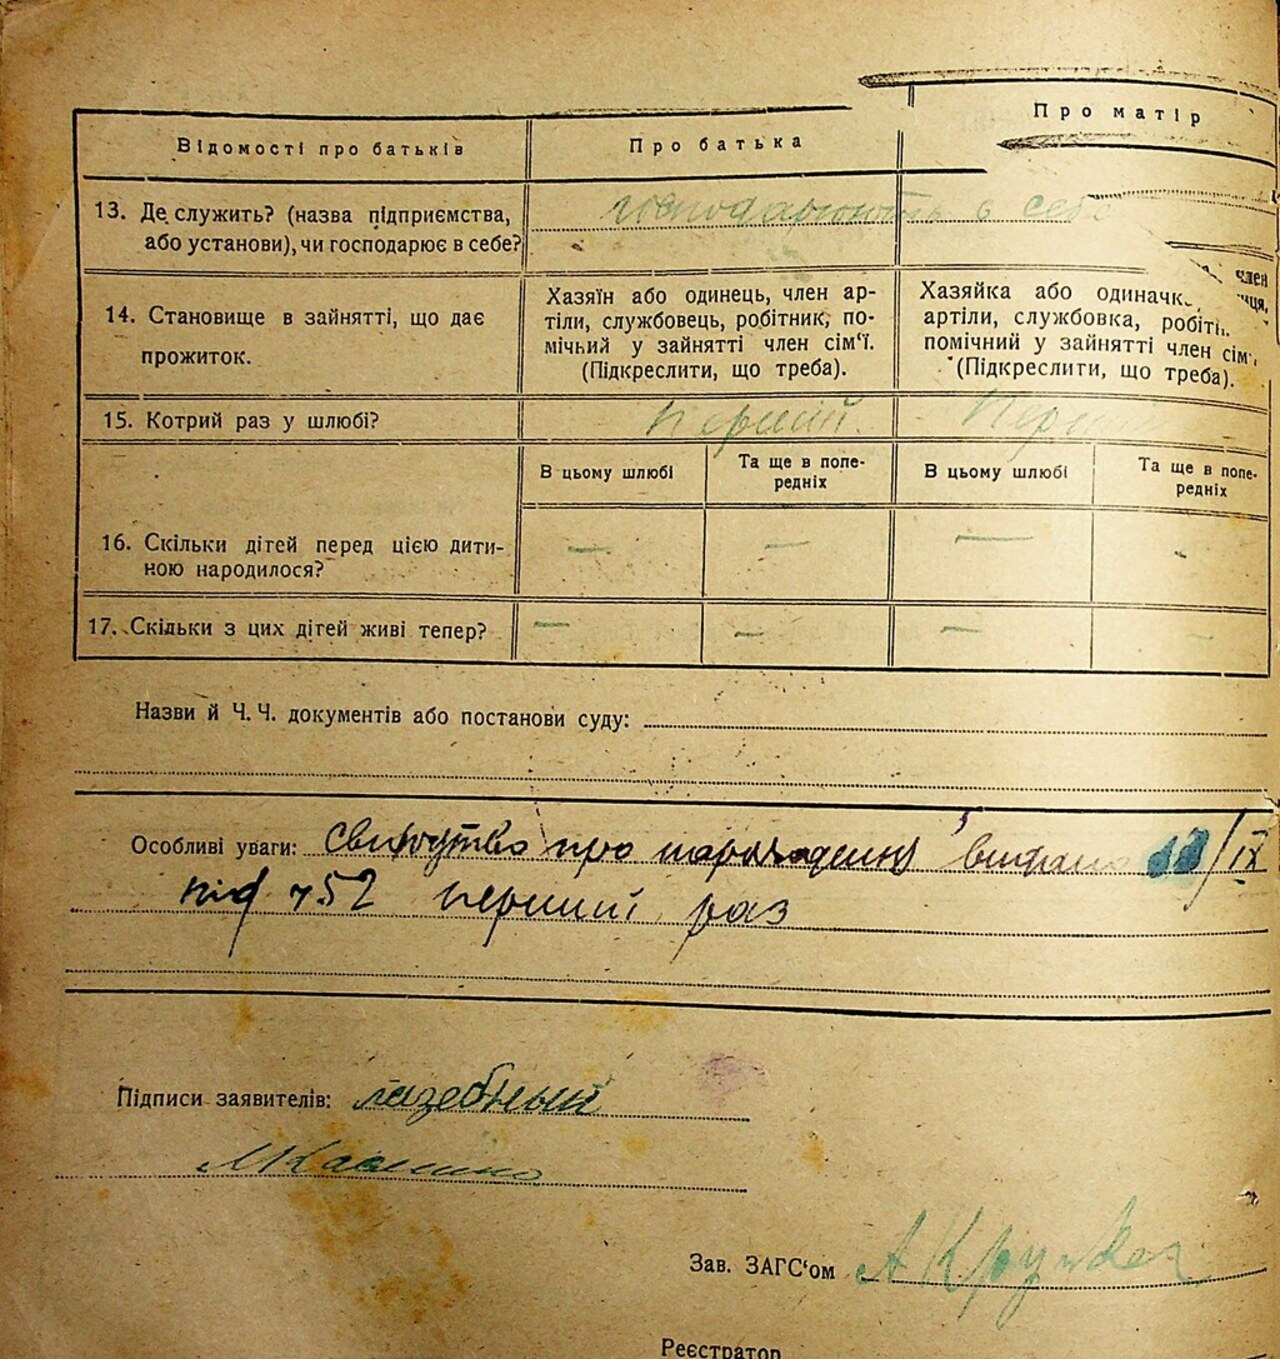 Про матір
Відомості про батьків
Про батька
13. Де служить? (назва підприємства,
або установи), чи господарює в себе?
господарюють в себе
14. Становище в зайнятті, що дає
прожиток.
Хазяїн або одинець, член ар-
тіли, службовець, робітник, по-
мічный у зайнятті член сім'ї.
(Підкреслити, що треба).
Хазяйка або одиначк
член
артіли, службовка, робітн.
помічний у зайнятті член сім'
(Підкреслити, що треба).
15. Котрий раз у шлюбі?
перший
Пер
В цьому шлюбі
Та ще в попе-
редніх
В цьому шлюбі
Та ще в попе-
редніх
16. Скільки дітей перед цією дити-
ною народилося?
— — — -
17. Скільки з цих дітей живі тепер?
— — — —
Назви й Ч. Ч. документів або постанови суду:
Особливі уваги: про видано /IX
під 752 перший раз
Підписи заявителів: лазебный
Зав. ЗАГС'ом
Реєстратор